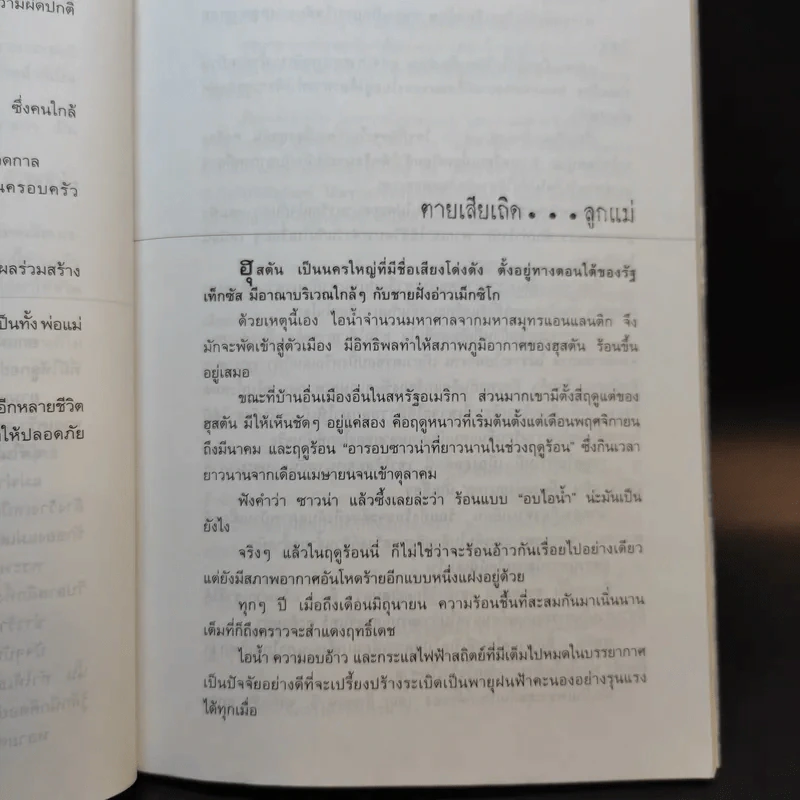 วามผิดปกติ
ซึ่งคนใกล้
ดกาล
นครอบครัว
ผลร่วมสร้าง
ป็นทั้ง พ่อแม่
อีกหลายชีวิต
ให้ปลอดภัย
ตายเสียเถิด...ลูกแม่
ฮุสตัน เป็นนครใหญ่ที่มีชื่อเสียงโด่งดัง ตั้งอยู่ทางตอนใต้ของรัฐ
เท็กซัส มีอาณาบริเวณใกล้ๆ กับชายฝั่งอ่าวเม็กซิโก
ด้วยเหตุนี้เอง ไอน้ำจำนวนมหาศาลจากมหาสมุทรแอนแลนติก จึง
มักจะพัดเข้าสู่ตัวเมือง มีอิทธิพลทำให้สภาพภูมิอากาศของฮุสตัน ร้อนชื้น
อยู่เสมอ
ขณะที่บ้านอื่นเมืองอื่นในสหรัฐอเมริกา ส่วนมากเขามีตั้งสี่ฤดูแต่ของ
ฮุสตัน มีให้เห็นชัดๆ อยู่แค่สอง คือฤดูหนาวที่เริ่มต้นตั้งแต่เดือนพฤศจิกายน
ถึงมีนาคม และฤดูร้อน “อารอบซาวน่าที่ยาวนานในช่วงฤดูร้อน” ซึ่งกินเวลา
ยาวนานจากเดือนเมษายนจนเข้าตุลาคม
ฟังคำว่า ซาวน่า แล้วซึ้งเลยล่ะว่า ร้อนแบบ “อบไอน้ำ” น่ะมันเป็น
ยังไง
จริงๆ แล้วในฤดูร้อนนี่ ก็ไม่ใช่ว่าจะร้อนอ้าวกันเรื่อยไปอย่างเดียว
แต่ยังมีสภาพอากาศอันโหดร้ายอีกแบบหนึ่งแฝงอยู่ด้วย
ทุกๆ ปี เมื่อถึงเดือนมิถุนายน ความร้อนชื้นที่สะสมกันมาเนิ่นนาน
เต็มที่ก็ถึงคราวจะสำแดงฤทธิ์เดช
ไอน้ำ ความอบอ้าว และกระแสไฟฟ้าสถิตย์ที่มีเต็มไปหมดในบรรยากาศ
เป็นปัจจัยอย่างดีที่จะเปรี้ยงปร้างระเบิดเป็นพายุฝนฟ้าคะนองอย่างรุนแรง
ได้ทุกเมื่อ